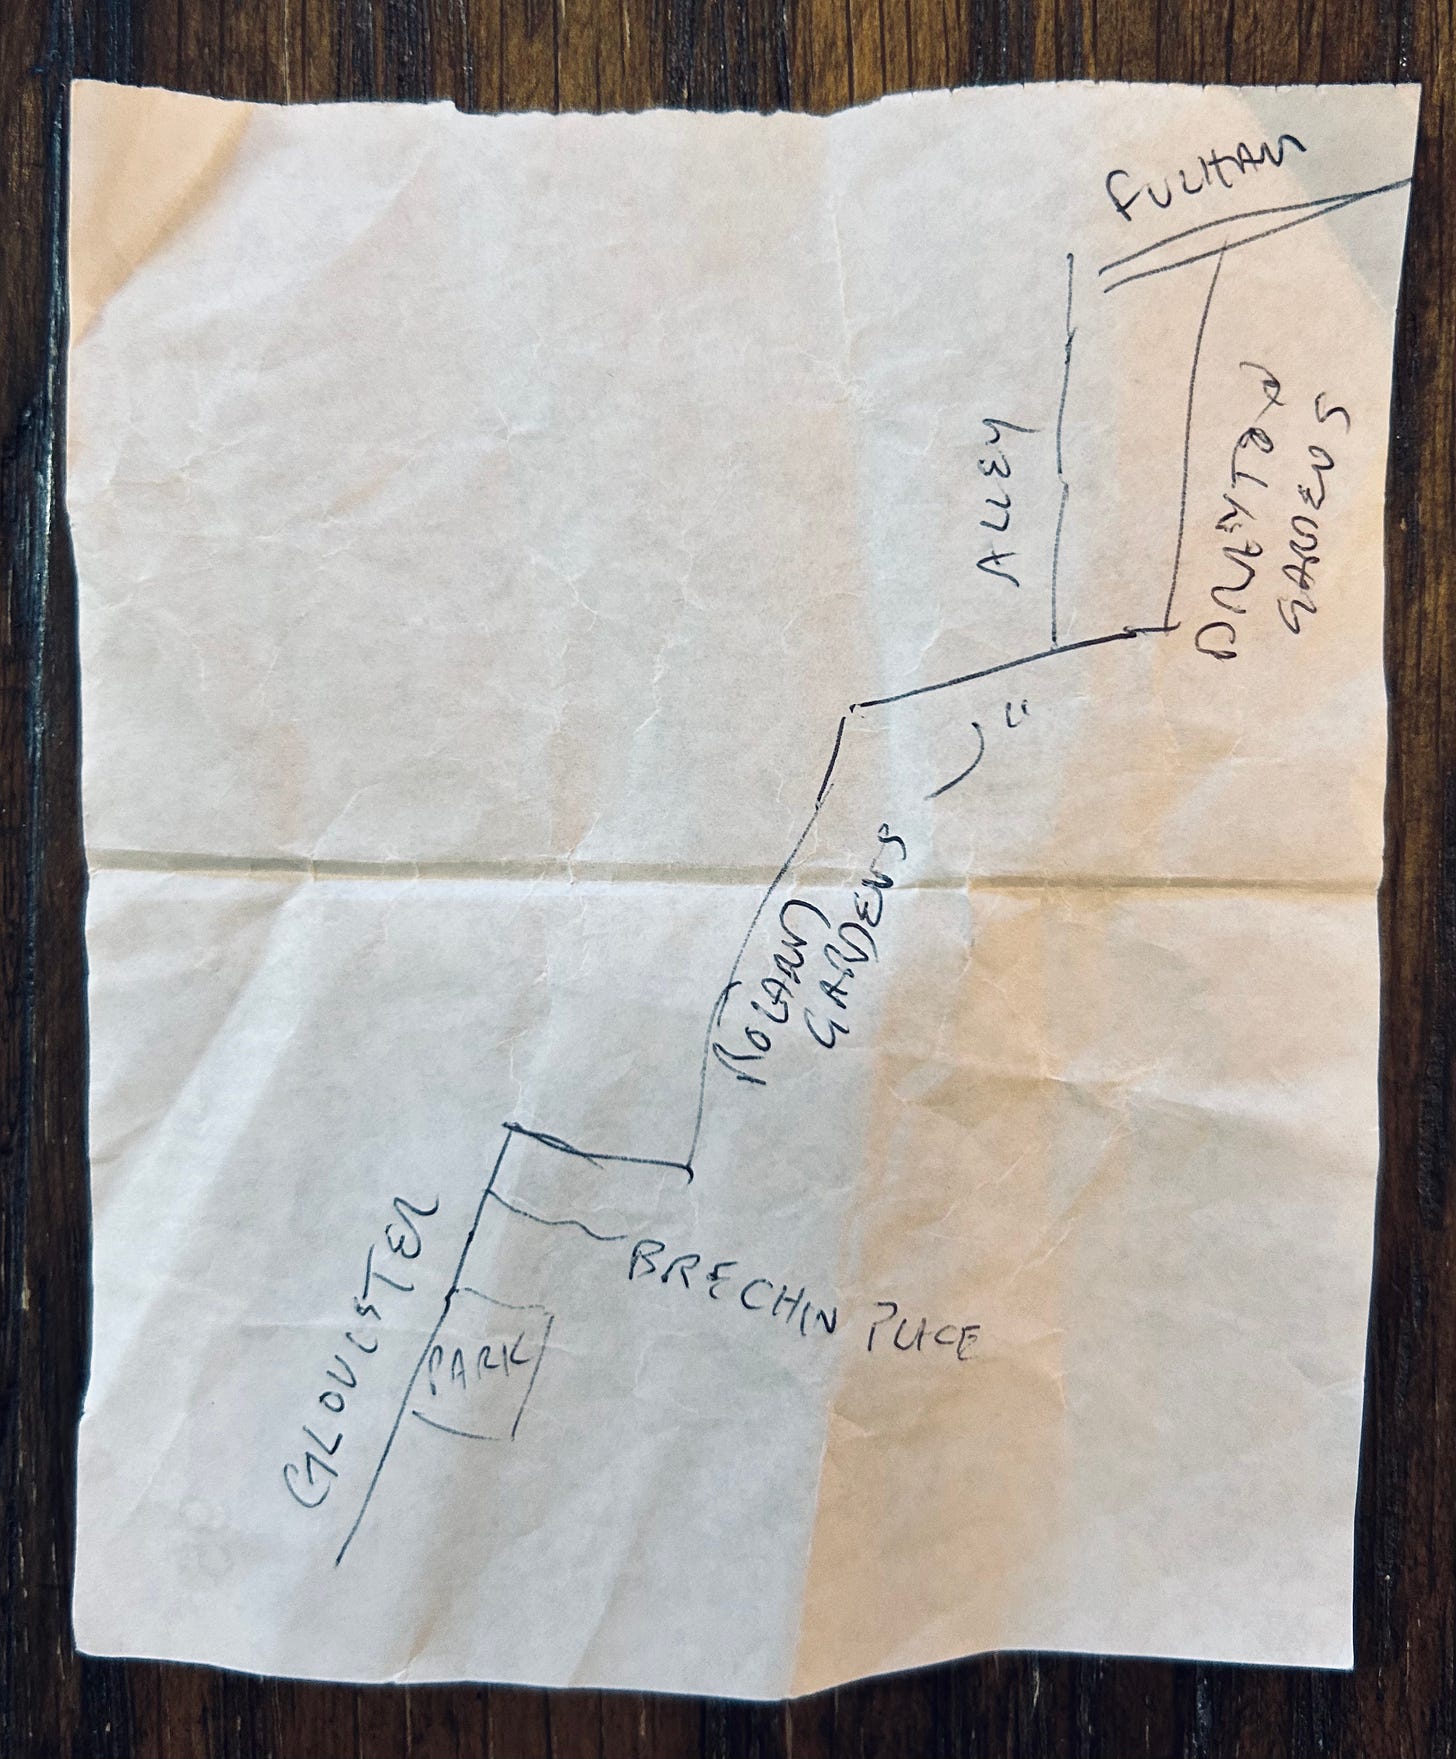 FULHAM
ALLEY
DRAYTON
GARDENS
"
ROLAND
GARDENS
GLOUCSTER
BRECHIN PLACE
PARK